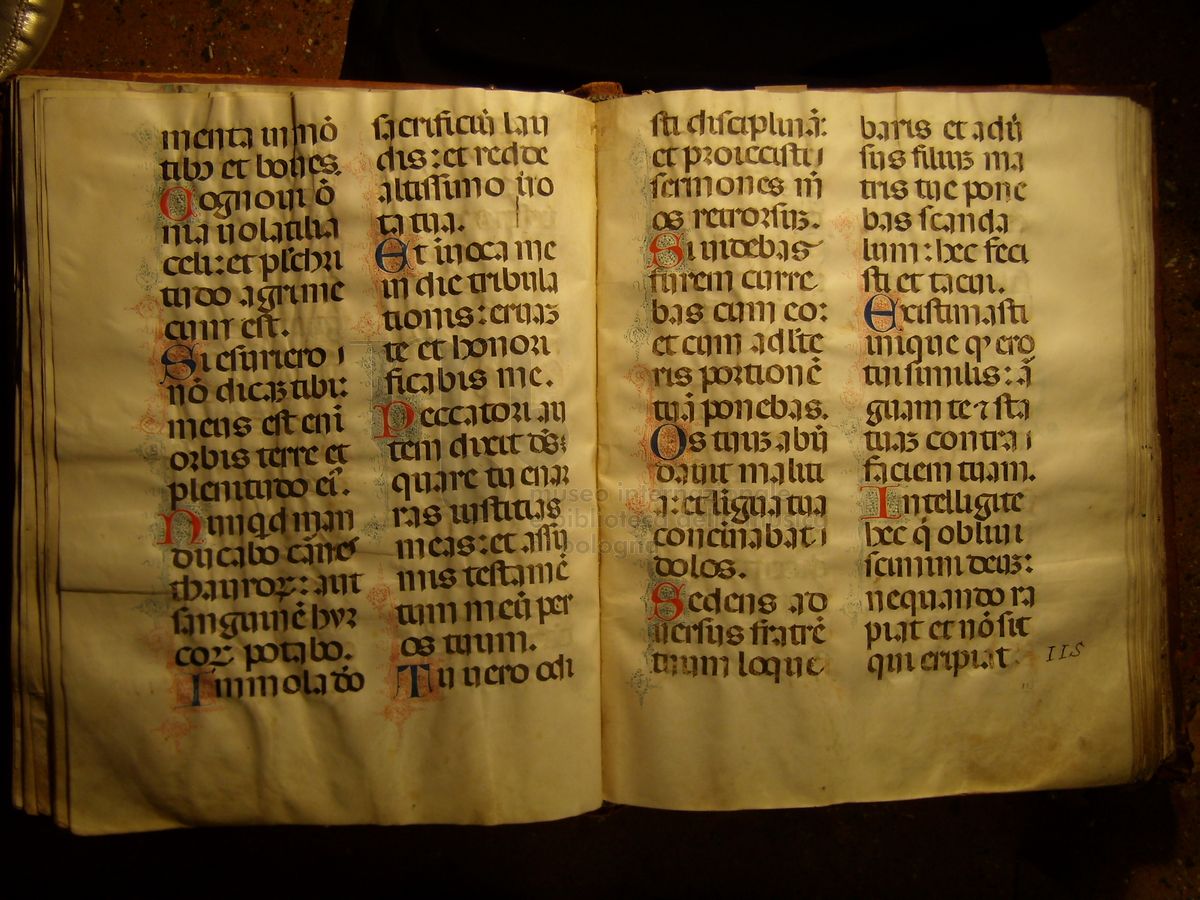 menta in mō
tibꝫ et boues.
Cognoui ō
nia uolatilia
celi: et pulchri
tudo agri me
cum est.
Si esuriero ı
nō dicaꝫ tibi:
meus est eni
orbis terre et
plenitudo ei⁹.
Nunqd man
ducabo carnes
thauroꝝ: aut
sanguinē hyr
coꝝ potabo.
Immola do
sacrificiū lau
dis: et redde
altissimo uo
ta tua.
Et inoca me
in die tribula
tionis: eruaꝫ
te et honori
ficabis me.
Peccatori au
tem dixit ds̄:
quare tu enar
ras iustitias
meas: et assu
mis testamē
tum meū per
os tuum.
Tu uero odi
sti disciplinā:
et proiecisti ı
sermones m̄
os retrorsuꝫ.
Si uidebas
furem curre
bas cum eo:
et cum adlte
ris portionē
tuā ponebas.
Os tuuꝫ abū
dauit maliti
a: et ligua tua
concinabat ı
dolos.
Sedens ad
uersus fratrē
tuum loque
baris et adū
sus filiuꝫ ma
tris tue pone
bas scanda
lum: hec feci
sti et tacui.
Existimasti
inique ꝙ ero
tui similis: ar̄
guam te ⁊ sta
tuaꝫ contra ı
faciem tuam.
Intelligite
hec q̇ obliui
scimini deuꝫ:
nequando ra
piat et nō sit
qui eripiat.
IIS
museo inter
biblioteca della musica
bologna